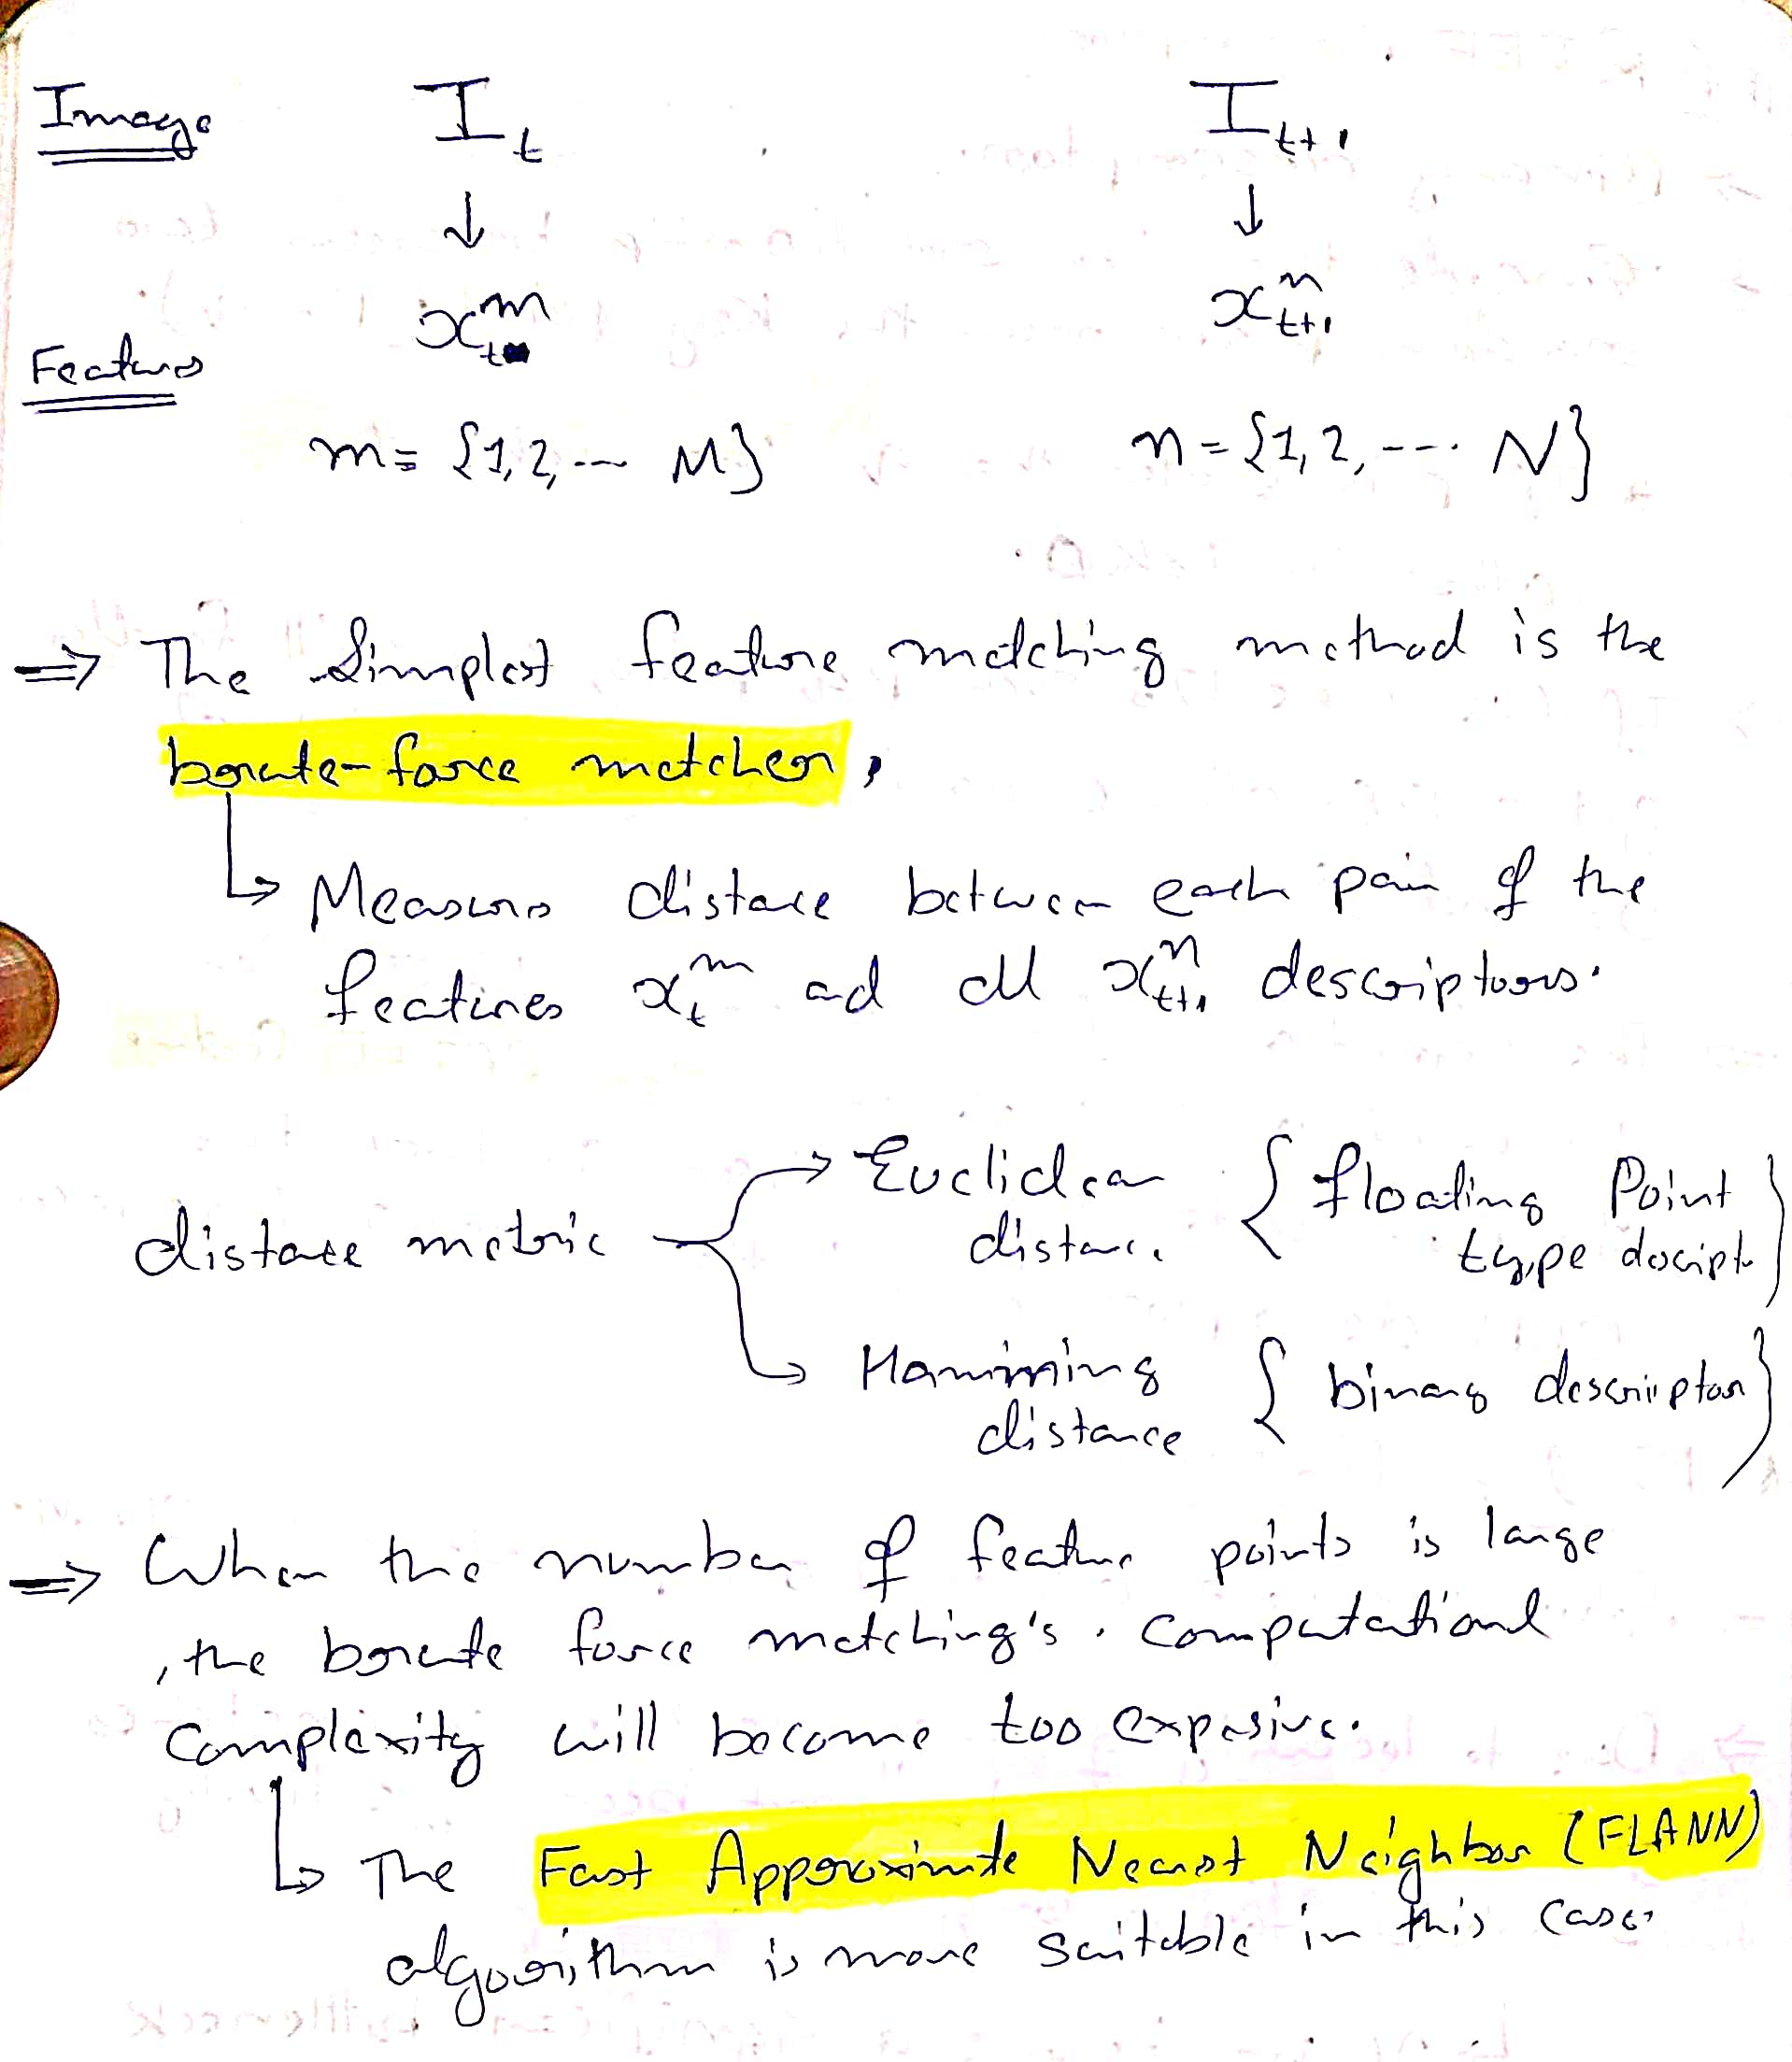 Image I_t I_{t+1}
↓ ↓
x_t^m x_{t+1}^n
Features
m = {1,2, --- M} n = {1,2, ---- N}
⇒ The simplest feature matching method is the
brute-force matcher,
↳ Measures distance between each pair of the
features x_t^m and all x_{t+1}^n descriptors.
→ Euclidean { floating Point
distance metric distance type descript }
↳ Hamming { binary descriptor }
distance
⇒ When the number of feature points is large
, the brute force matching's computational
complexity will become too expensive.
↳ The Fast Approximate Nearest Neighbor (FLANN)
algorithm is more suitable in this case.